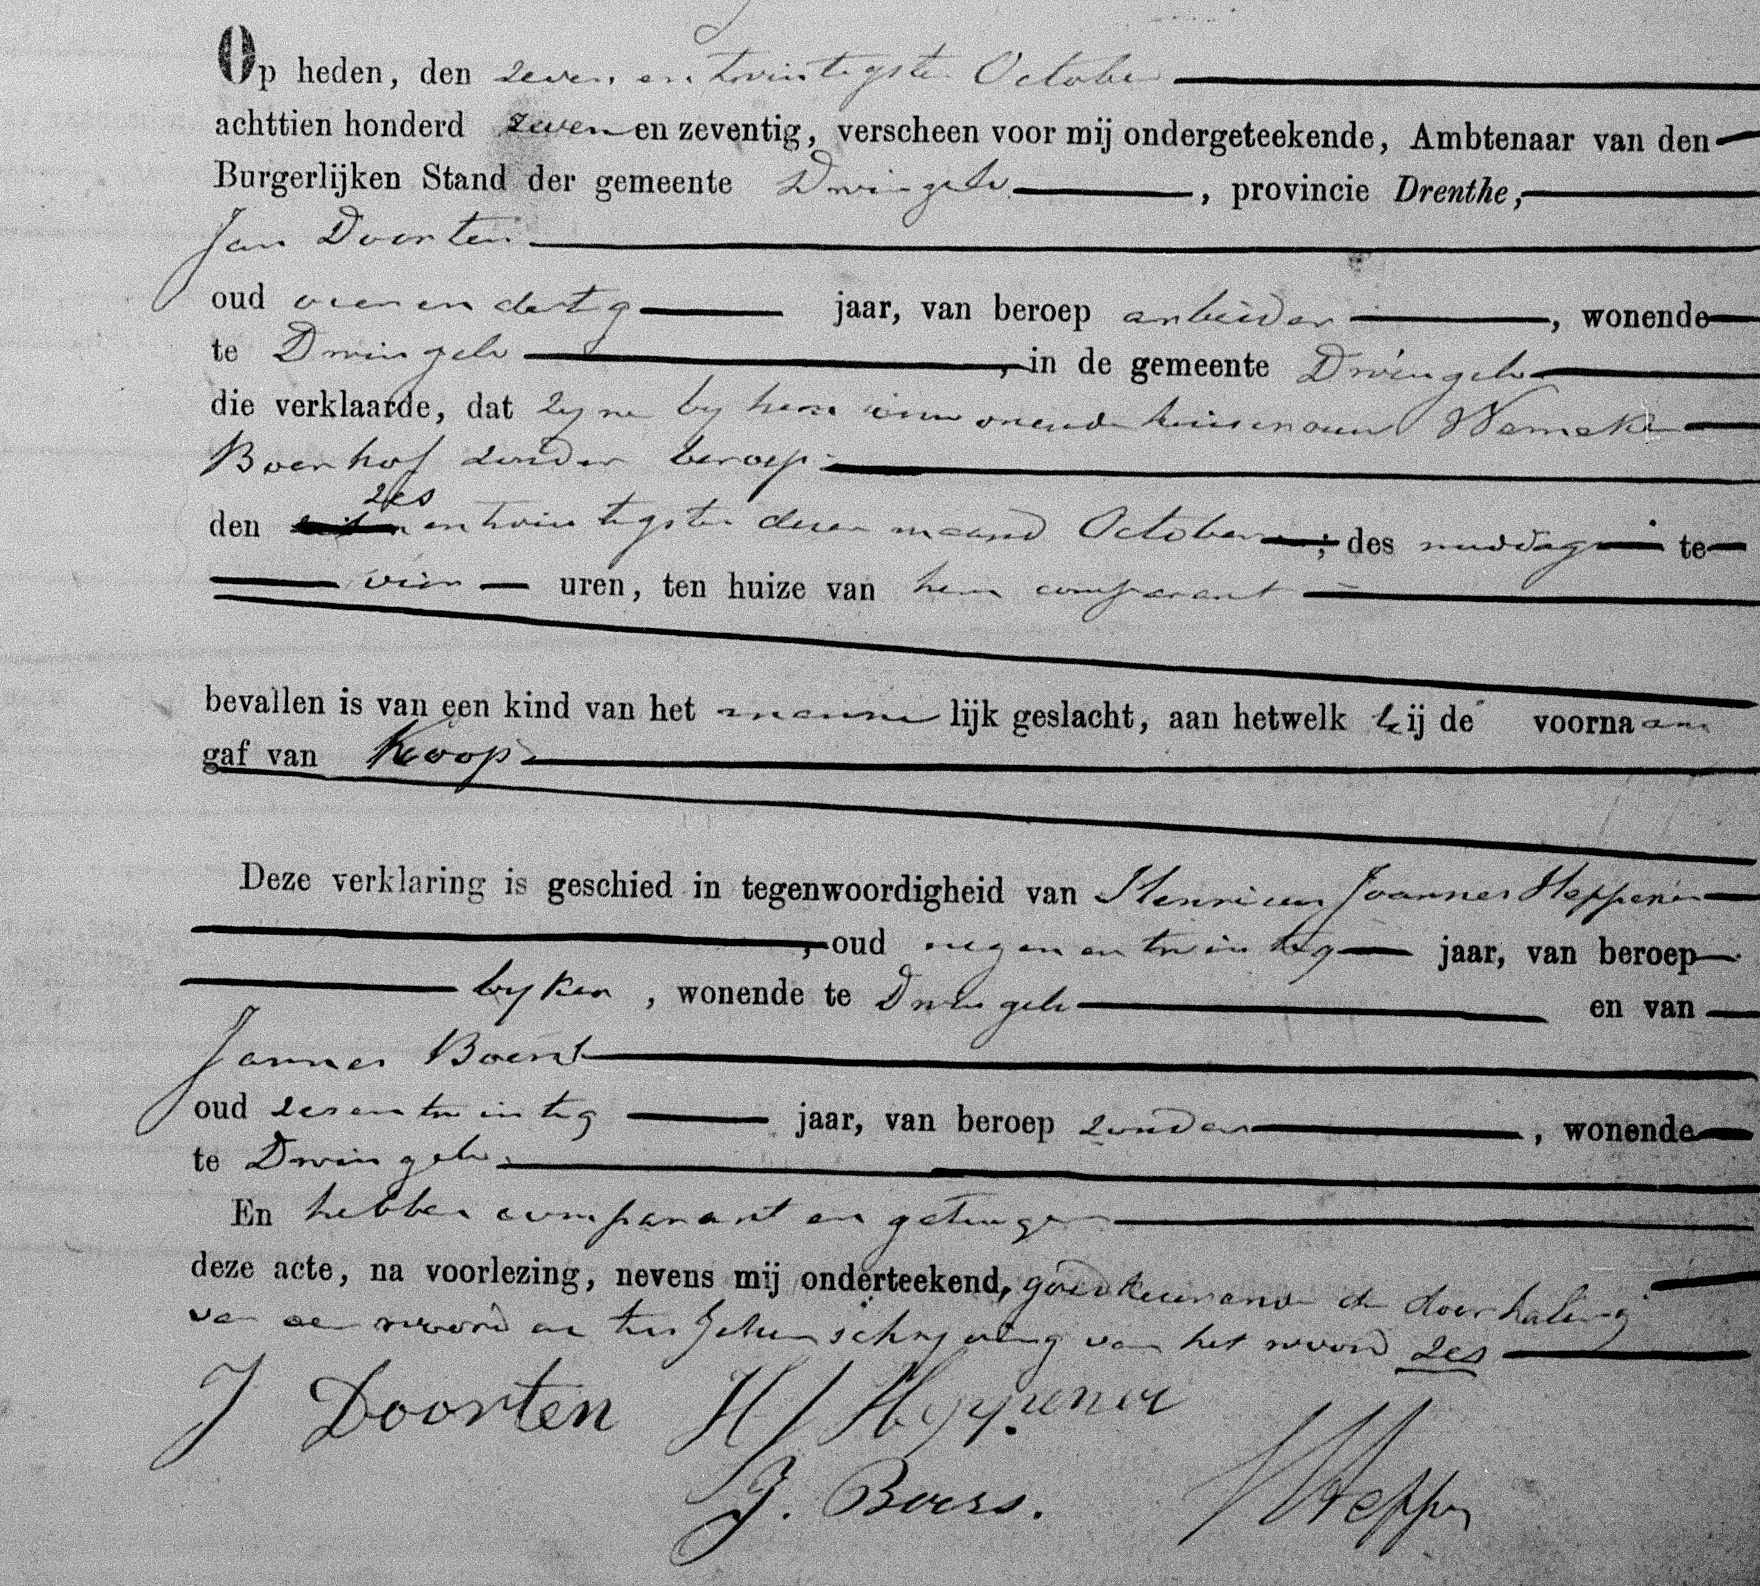 Op heden, den zeven en twintigsten October
achttien honderd zeven en zeventig, verscheen voor mij ondergeteekende, Ambtenaar van den
Burgerlijken Stand der gemeente Dwingelo, provincie Drenthe,
Jan Doorten
oud vierendertig jaar, van beroep arbeider, wonende
te Dwingelo, in de gemeente Dwingelo
die verklaarde, dat zyne by hem inwonende huisvrouw Wemeke
Boerhof zonder beroep
zes
den en twintigsten dezer maand October, des middags te
vier uren, ten huize van hem comparant
bevallen is van een kind van het manne lijk geslacht, aan hetwelk hij de voornaam
gaf van Koop
Deze verklaring is geschied in tegenwoordigheid van Henricus Joannes Heppener
, oud negenentwintig jaar, van beroep
, wonende te Dwingelo en van
Jannes Boers
oud zesentwintig jaar, van beroep zonder, wonende
te Dwingelo
En hebben comparant en getuigen
deze acte, na voorlezing, nevens mij onderteekend, goedkeurende de doorhaling
van een woord en tusschenschryving van het woord zes
J Doorten HJ Heppener
J. Boers.